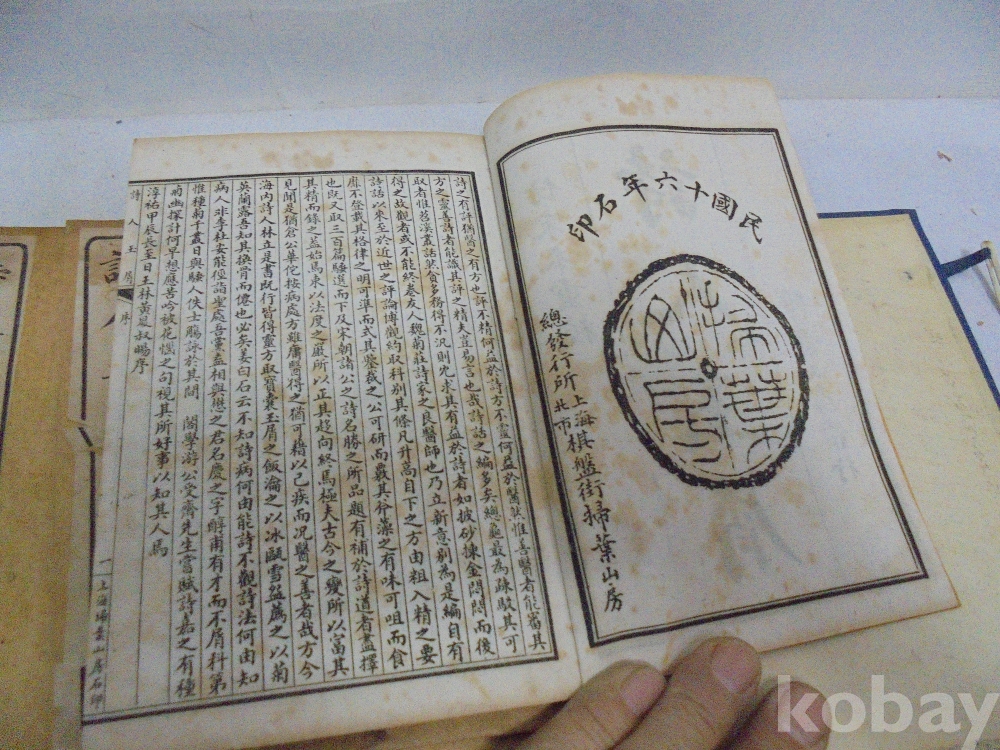 民國十六年石印
掃葉山房
總發行所上海棋盤街掃葉山房
北市
詩之有評猶醫之有方也評不精何益於詩方不靈何益於醫然惟善醫者能審其
方之靈善詩者能識其評之精夫豈易言也哉詩話之編多矣總龜最為疎駁其可
取者惟苕溪叢話然貪多務得不泛則冗求其有益於詩者如披砂揀金悶悶而後
得之故觀者或不能終卷友人魏菊莊詩家之良醫師也乃立新意別為是編自有
詩話以來至於近世之評論博觀約取科別其條凡升高自下之方由粗入精之要
靡不登載其格律之明可準而式其鑒裁之公可研而覈其斧藻之有味可咀而食
也既又取三百篇騷選而下及宋朝諸公之詩名勝之所品題有補於詩道者盡擇
其精而錄之蓋始焉束以法度之嚴所以正其趨向終焉極夫古今之變所以富其
見聞是猶倉公華佗按病處方雖庸醫得之猶可藉以已疾而況醫之善者哉方今
海內詩人林立是書既行皆得靈方取寶囊玉屑之飯瀹之以冰甌雪盌薦之以菊
英蘭露吾知其換骨而僊也必矣姜白石云不知詩病何由能詩不觀詩法何由知
病人非李杜安能徑詣聖處吾黨盍相與懋之君名慶之字醇甫有才而不屑科第
惟種菊千叢日與騷人佚士觴詠於其間 閣學游公受齋先生嘗賦詩嘉之有種
菊幽探計何早想應苦吟被花惱之句視其所好事以知其人焉
淳祐甲辰長至日玉林黃昇叔暘序
詩人玉屑 序 一 上海掃葉山房石印
kobay